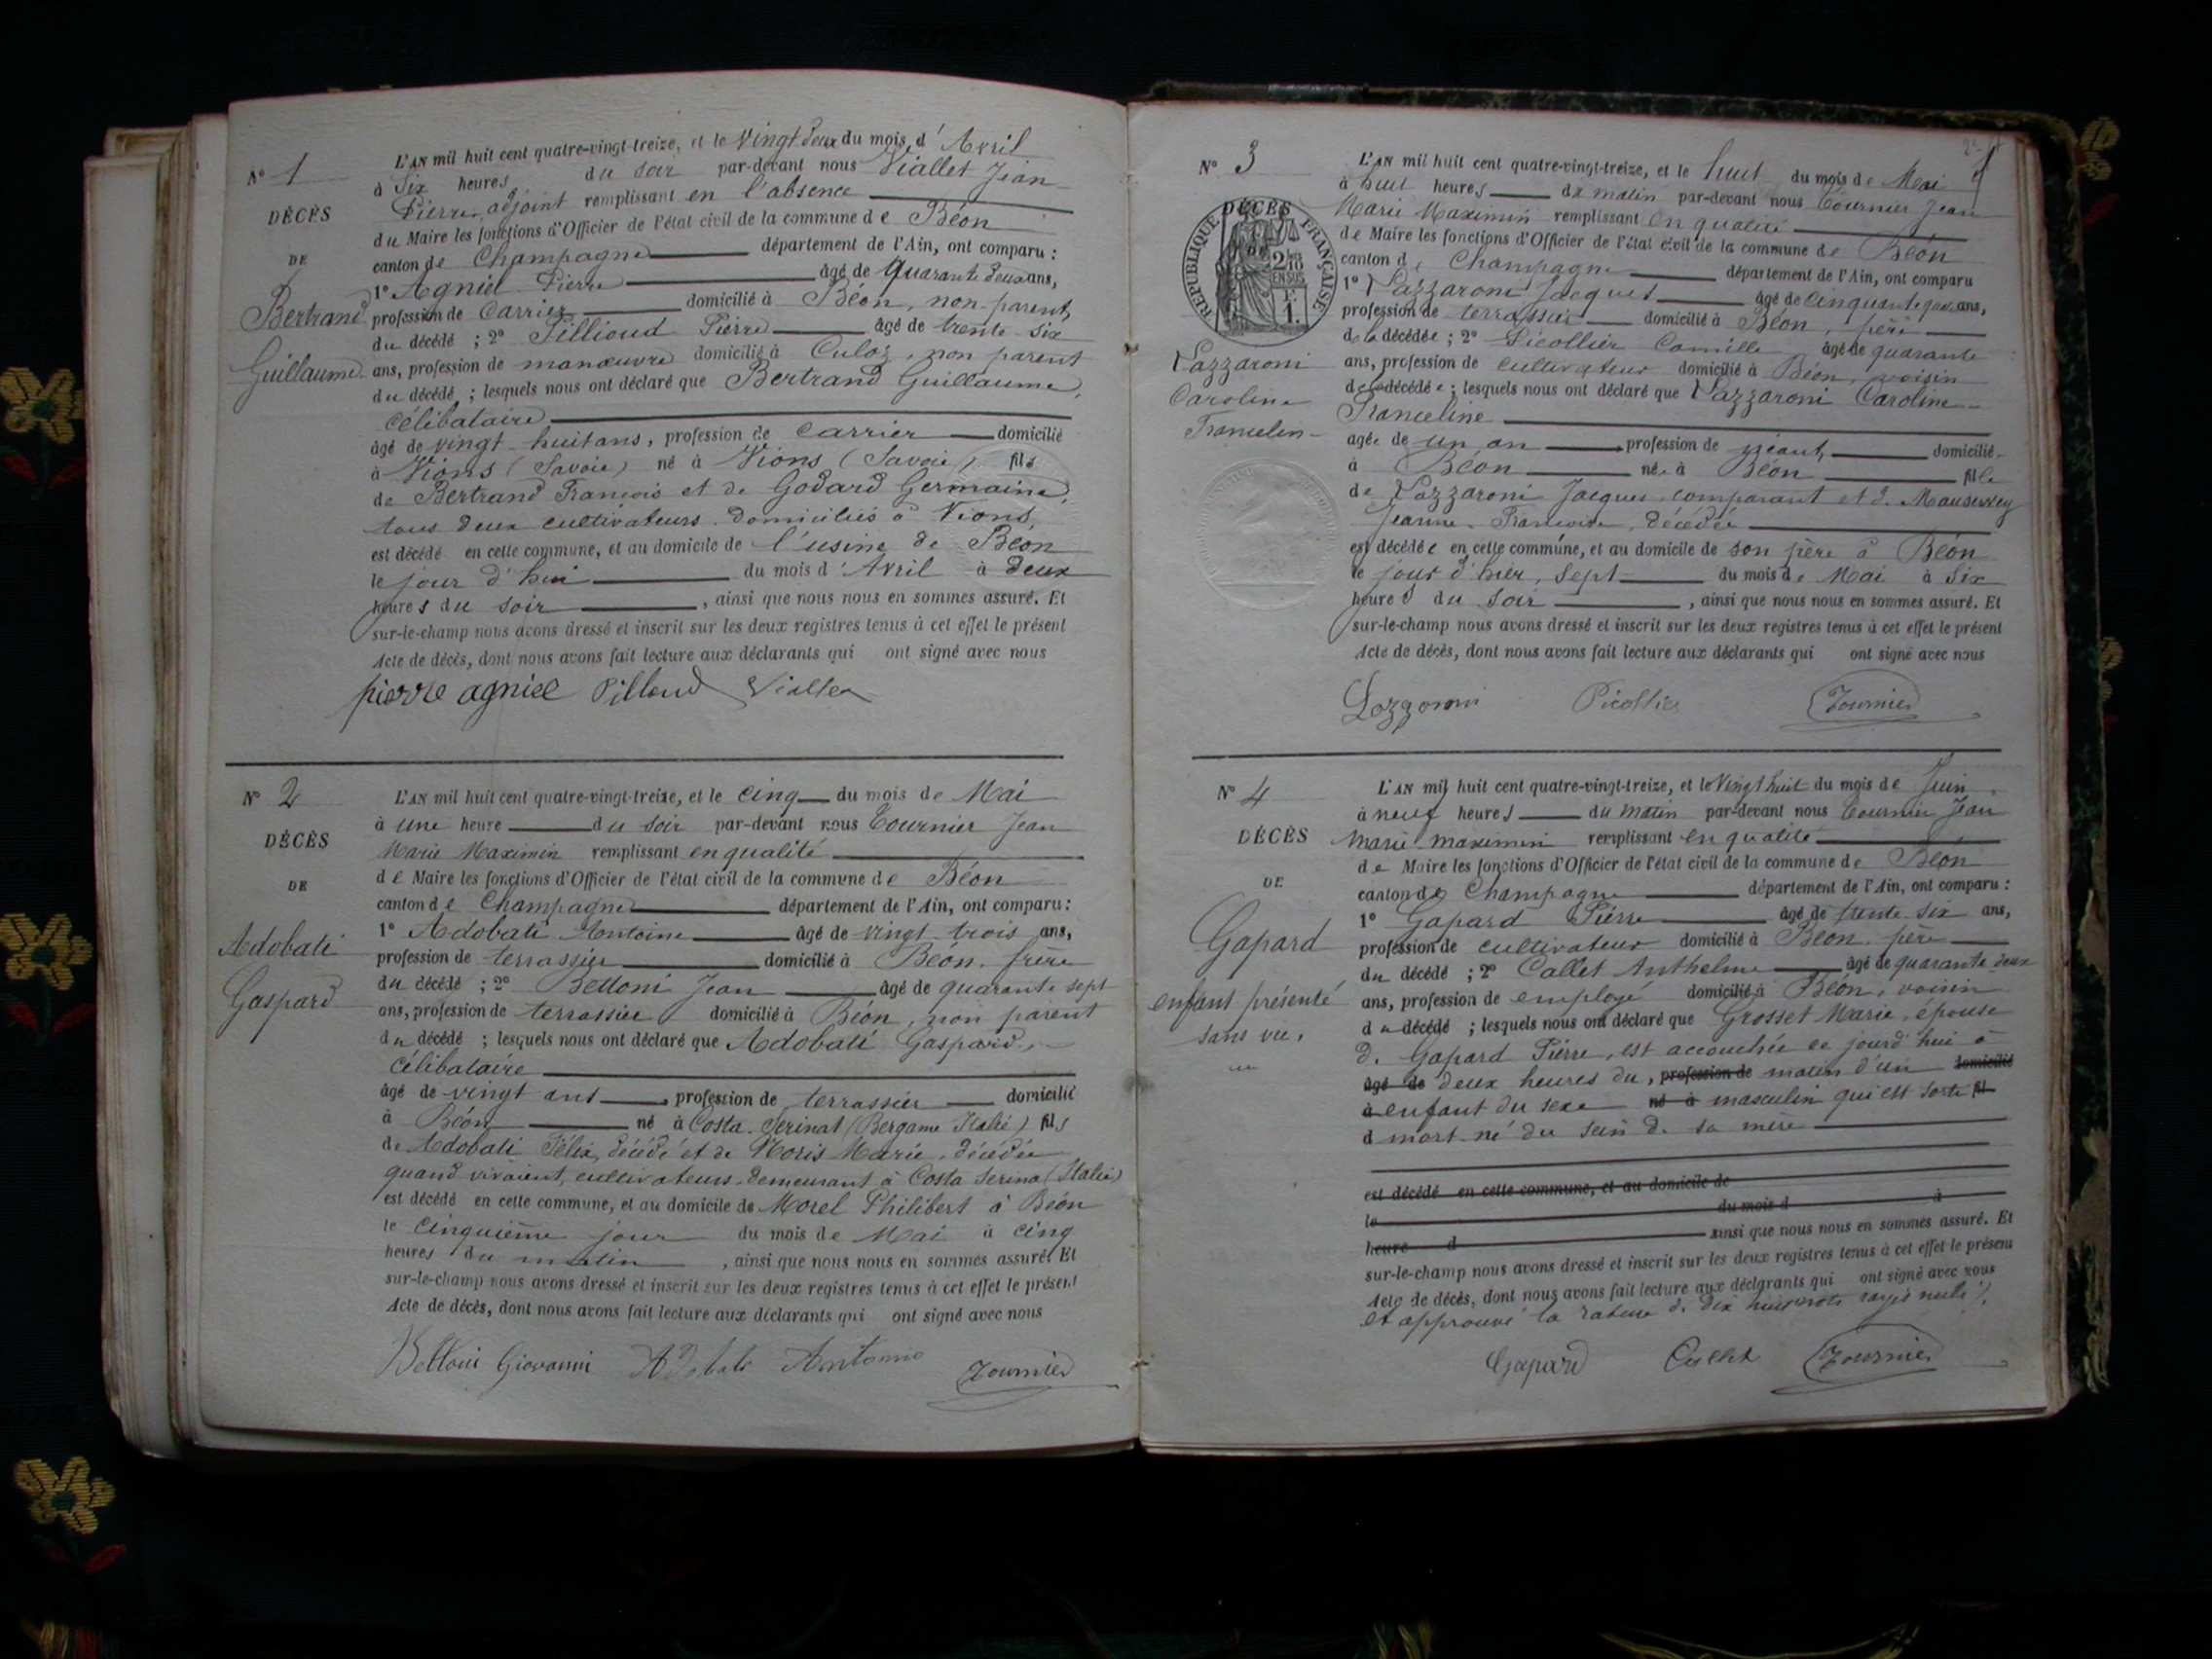 N° 1
DÉCÈS
DE
Bertrand
Guillaume
L'AN mil huit cent quatre-vingt-treize, et le vingt deux du mois d'Avril
à Six heures du soir par-devant nous Viallet Jean
Pierre, adjoint remplissant en l'absence
du Maire les fonctions d'Officier de l'état civil de la commune de Béon
canton de Champagne département de l'Ain, ont comparu :
1° Agniel Pierre âgé de quarante deux ans,
profession de Carrier domicilié à Béon, non parent
du décédé ; 2° Pillioud Pierre âgé de trente six
ans, profession de manœuvre domicilié à Culoz, non parent
du décédé ; lesquels nous ont déclaré que Bertrand Guillaume,
Célibataire
âgé de vingt-huit ans, profession de Carrier domicilié
à Vions (Savoie) né à Vions (Savoie) fils
de Bertrand François et de Godard Germaine,
tous deux cultivateurs domiciliés à Vions,
est décédé en cette commune, et au domicile de l'usine de Béon
le jour d'hui du mois d'Avril à deux
heures du soir, ainsi que nous nous en sommes assuré. Et
sur-le-champ nous avons dressé et inscrit sur les deux registres tenus à cet effet le présent
Acte de décès, dont nous avons fait lecture aux déclarants qui ont signé avec nous
pierre agniel Pilloud Viallet
N° 2
DÉCÈS
DE
Adobati
Gaspard
L'AN mil huit cent quatre-vingt-treize, et le cinq du mois de Mai
à une heure du soir par-devant nous Tournier Jean
Marie Maximin remplissant en qualité
de Maire les fonctions d'Officier de l'état civil de la commune de Béon
canton de Champagne département de l'Ain, ont comparu :
1° Adobati Antoine âgé de vingt trois ans,
profession de terrassier domicilié à Béon, frère
du décédé ; 2° Belloni Jean âgé de quarante sept
ans, profession de terrassier domicilié à Béon, non parent
du décédé ; lesquels nous ont déclaré que Adobati Gaspard,
Célibataire
âgé de vingt ans, profession de terrassier domicilié
à Béon né à Costa Serinat (Bergame Italie) fils
de Adobati Félix, décédé et de Noris Marie, décédée
quand vivaient, cultivateurs demeurant à Costa Serina (Italie)
est décédé en cette commune, et au domicile de Morel Philibert à Béon
le Cinquième jour du mois de Mai à cinq
heures du matin, ainsi que nous nous en sommes assuré. Et
sur-le-champ nous avons dressé et inscrit sur les deux registres tenus à cet effet le présent
Acte de décès, dont nous avons fait lecture aux déclarants qui ont signé avec nous
Belloni Giovanni Adobati Antonio Tournier
N° 3
DÉCÈS
RÉPUBLIQUE FRANÇAISE
Lazzaroni
Caroline
Francelin
L'AN mil huit cent quatre-vingt-treize, et le huit du mois de Mai
à huit heures du matin par-devant nous Tournier Jean
Marie Maximin remplissant en qualité
de Maire les fonctions d'Officier de l'état civil de la commune de Béon
canton de Champagne département de l'Ain, ont comparu
1° Lazzaroni Jacques âgé de cinquante ans,
profession de terrassier domicilié à Béon, père
de la décédée ; 2° Picollier Camille âgé de quarante
ans, profession de cultivateur domicilié à Béon, voisin
de la décédée ; lesquels nous ont déclaré que Lazzaroni Caroline
Franceline
agée de un an profession de néant domiciliée
à Béon née à Béon fille
de Lazzaroni Jacques, comparant et de
Jeanne Françoise, décédée
est décédée en cette commune, et au domicile de son père à Béon
le jour d'hier, sept du mois de Mai à Six
heures du soir, ainsi que nous nous en sommes assuré. Et
sur-le-champ nous avons dressé et inscrit sur les deux registres tenus à cet effet le présent
Acte de décès, dont nous avons fait lecture aux déclarants qui ont signé avec nous
Lazzaroni Picollier Tournier
N° 4
DÉCÈS
DE
Gapard
enfant présenté
sans vie,
L'AN mil huit cent quatre-vingt-treize, et le Vingt huit du mois de Juin
à neuf heures du matin par-devant nous Tournier Jean
Marie maximin remplissant en qualité
de Maire les fonctions d'Officier de l'état civil de la commune de Béon
canton de Champagne département de l'Ain, ont comparu :
1° Gapard Pierre âgé de trente six ans,
profession de cultivateur domicilié à Béon, père
du décédé ; 2° Callet Anthelme âgé de quarante deux
ans, profession de employé domicilié à Béon, voisin
du décédé ; lesquels nous ont déclaré que Grosset Marie, épouse
de Gapard Pierre, est accouchée ce jourd'hui à
âgé de deux heures du, profession de matin d'un domicilié
à enfant du sexe né à masculin qui est sorti fil
d mort-né du sein de sa mère
est décédé en cette commune, et au domicile de
le du mois d à
heure d ainsi que nous nous en sommes assuré. Et
sur-le-champ nous avons dressé et inscrit sur les deux registres tenus à cet effet le présent
Acte de décès, dont nous avons fait lecture aux déclarants qui ont signé avec nous
et approuvé la rature de dix huit mots rayés nuls
Gapard Callet Tournier